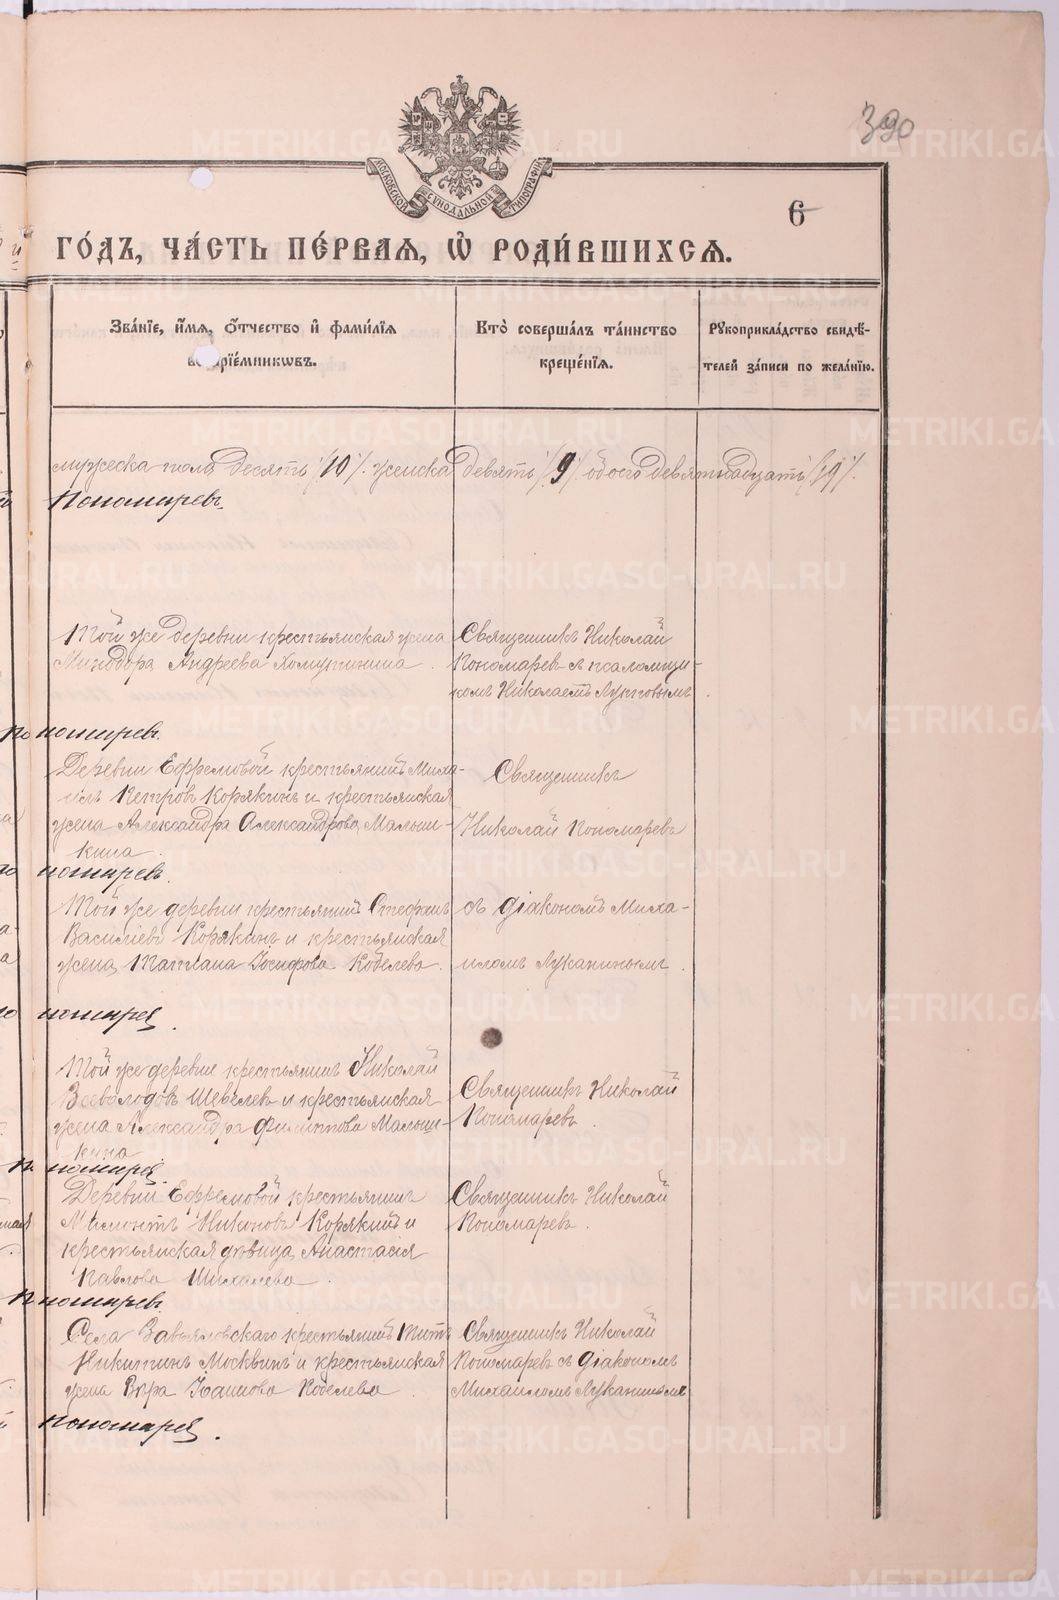 390
МОСКОВСКОЙ СѴНОДАЛЬНОЙ ТИПОГРАФІИ
6
го́дъ, ча́сть пе́рваѧ, ѡ҆ роди́вшихсѧ.
Зва́нїе, и҆́мѧ, ѻ҆́тчество и҆ фами́лїѧ
Кто̀ соверша́лъ та́инство
Рꙋкоприкла́дство свидѣ́-
прїе́мникѡвъ.
креще́нїѧ.
телей за́писи по жела́нїю.
мужеска пола десять /10/. женска девять /9/ обоего девятнадцать /19/.
Пономаревъ.
Той же деревни крестьянская жена
Минодора Андреева Хомутинина.
Священникъ Николай
Пономаревъ съ псаломщи-
комъ Николаемъ Лупповымъ
Пономаревъ.
Деревни Ефремовой крестьянинъ Миха-
илъ Петровъ Корякинъ и крестьянская
жена Александра Александрова Малыш-
кина.
Священникъ
Николай Пономаревъ
номаревъ.
Той же деревни крестьянинъ Стефанъ
Василіевъ Корякинъ и крестьянская
жена Татіана Іосифова Кобелева.
съ діакономъ Миха-
иломъ Луканинымъ.
номарев.
Той же деревни крестьянинъ Николай
Всеволодовъ Шевелевъ и крестьянская
жена Александра Филиппова Малыш-
кина
Священникъ Николай
Пономаревъ.
номарев.
Деревни Ефремовой крестьянинъ
Мамонтъ Никоновъ Корякинъ и
крестьянская дѣвица Анастасія
Павлова Шихалева.
Священникъ Николай
Пономаревъ.
номаревъ.
Села Завьяловскаго крестьянинъ Титъ
Никитинъ Москвинъ и крестьянская
жена Вѣра Іоаннова Кобелева.
Священникъ Николай
Пономаревъ съ діакономъ
Михаиломъ Луканинымъ
Пономарев.
METRIKI.GASO-URAL.RU